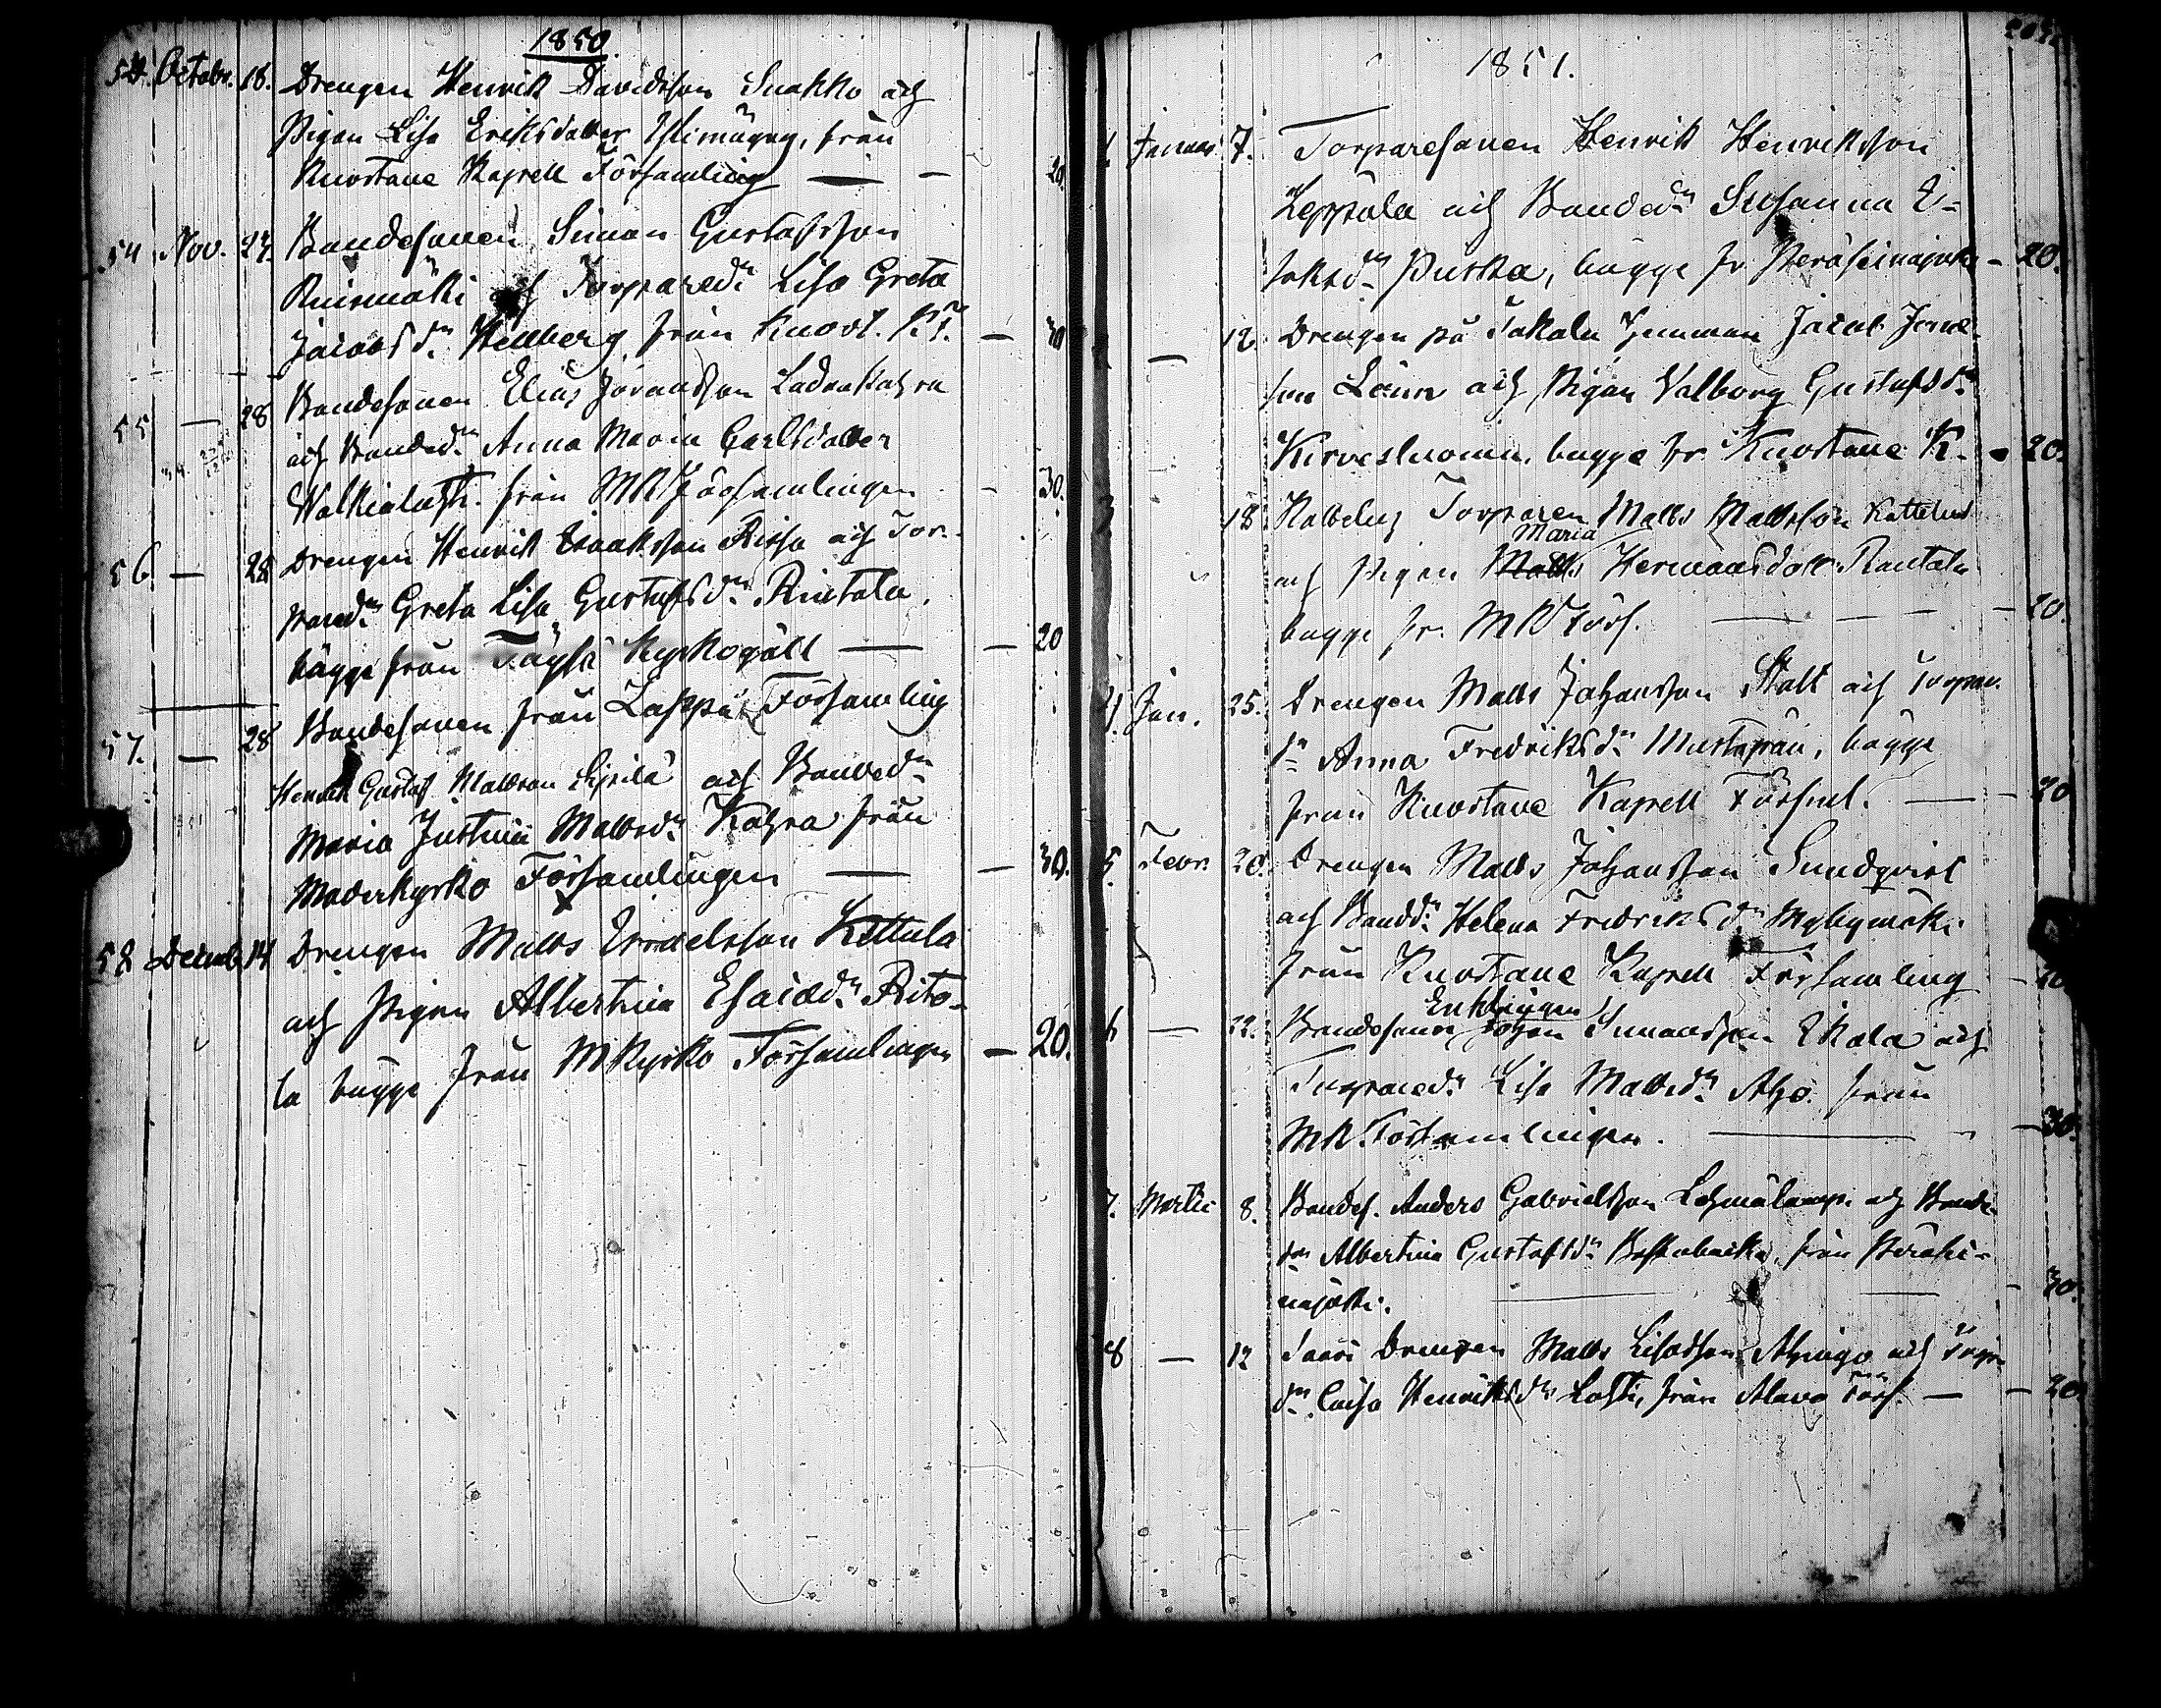 1850.
Octobr. 18. Drengen Henrik Davidsson Suokko och
Pigan Lisa Eriksdotter från
Kuortane Kapell Församling — — 20.
54 Nov. 27. Bondesonen Simon Gustafsson
Ruismäki och Torpared:r Lisa Greta
Jacobsd:r Hellberg från Kuort. K. — 30
55 — 28 Bondesonen Elias
och Bonded:r Anna Maria Carlsdotter
från MK Församlingen — 30.
56 — 28 Drengen Henrik Isaaksson Rissa och Tor-
pared:r Greta Lisa Gustafsd:r Rintala,
bägge från Töysä Kyrkogäll — — 20
57. — 28 Bondesonen från Lappo Församling
Henrik Gustaf Mattsson Sipilä och Bonded:r
Maria Justina Mattsd:r Katzra från
Moderkyrko Församlingen — — 30.
58 Decemb. 14 Drengen Matts Ismaelsson Kettula
och Pigan Albertina Esaiæd:r Rito-
la bägge från MKyrko Församlingen — 20.
1851.
1 Januari 7. Torparesonen Henrik Henriksson
Leppälä och Bonded:r Susanna I-
saksd:r Puska, bägge fr. Peräseinäjoki — 20.
— 12. Drengen på Jacob
son och Pigan Valborg Gustafsd:r
Kirvesluoma, bägge fr. Kuortane K. — 20.
3 18 Torparen Matts Mattsson
Maria
och Pigan Matts Hermansdott. Rantala
bägge fr. MK Förs. — — — — 20.
4. Jan. 25. Drengen Matts Johansson Stolt och Torpar.
d:r Anna Fredriksd:r Mustapää, bägge
från Kuortane Kapell Försml. — — 20
5. Febr. 20. Drengen Matts Johansson Sundqvist
och Bondd:r Helena Fredriksd:r Myllymäki
från Kuortane Kapell Församling — 20
Enklingen
6 — 22. Bondesonen Johan Simonsson Ekola och
Torpared:r Lisa Mattsd:r Aho från
MK. Församlingen. — — 30.
7. Martii 8. Bondes. Anders Gabrielsson Lehmälampi och Bonde-
d:r Albertina Gustafsd:r från Peräsei-
näjoki. — — — 30.
8 — 12 Drengen Matts och Torp.
d:r Caisa Henriksd:r från Alavo Förs. — — 20.